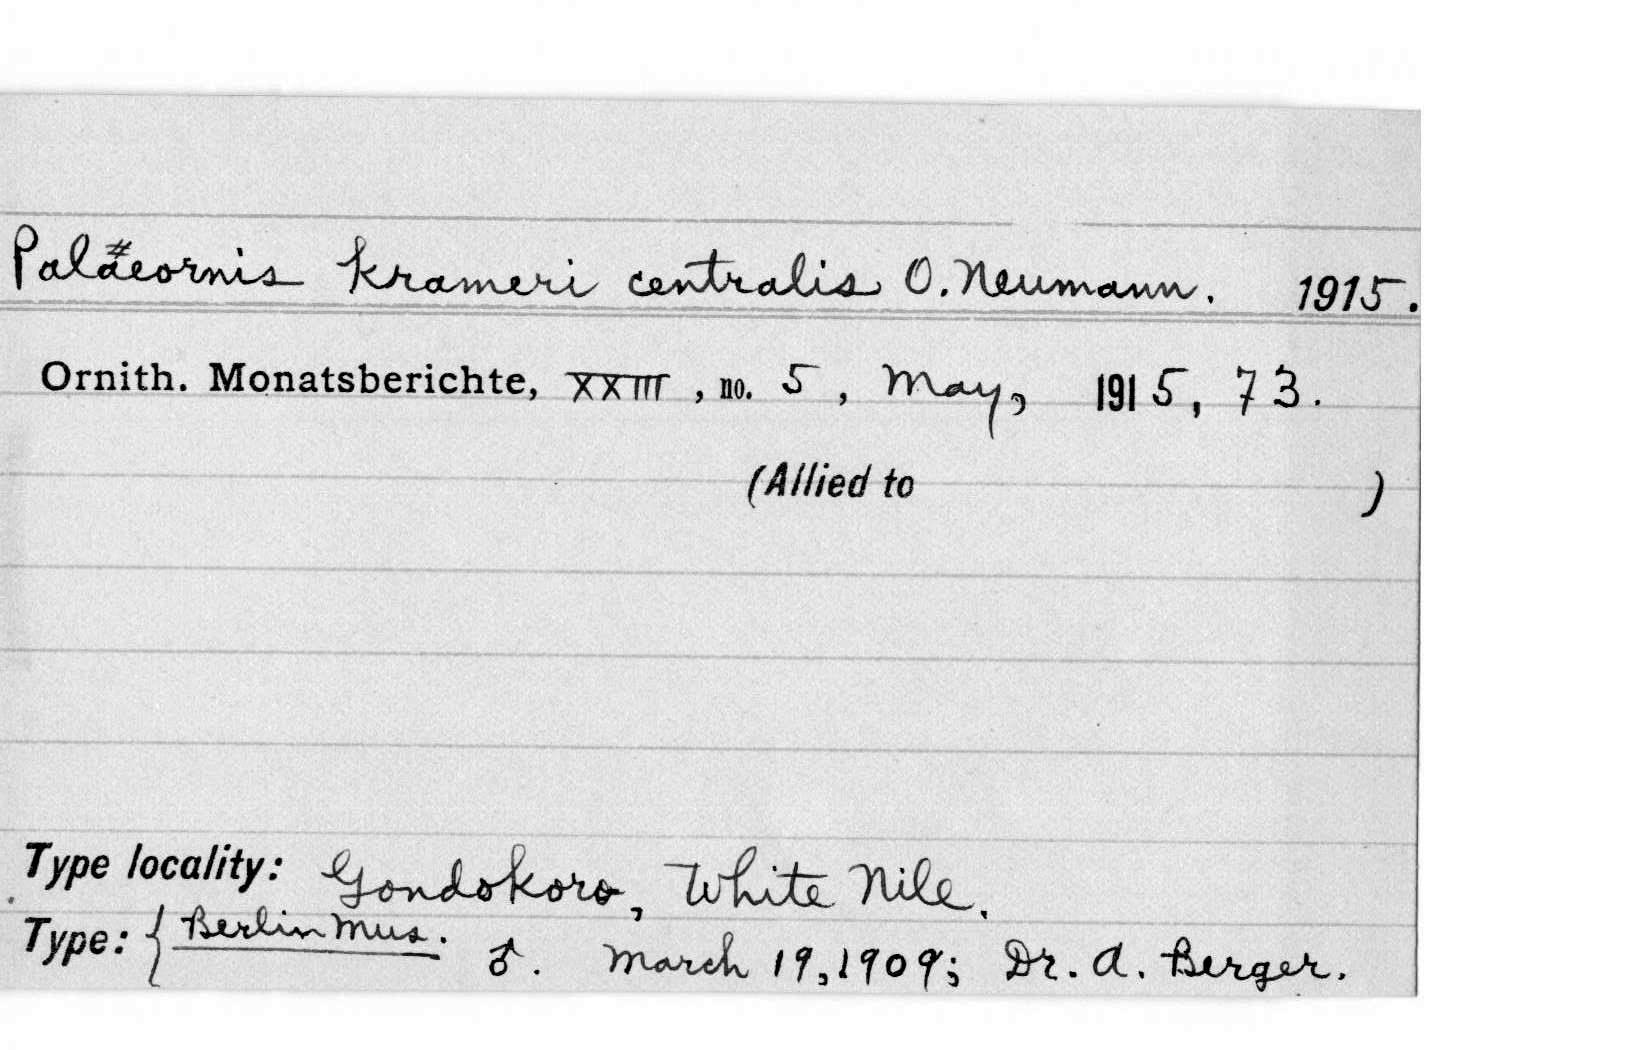 Palaeornis krameri centralis O. Neumann. 1915.
Ornith. Monatsberichte, XXIII, no. 5, May, 1915, 73.
(Allied to )
Type locality: Gondokoro, White Nile.
Type: { Berlin Mus. ♂. March 19, 1909; Dr. A. Berger.